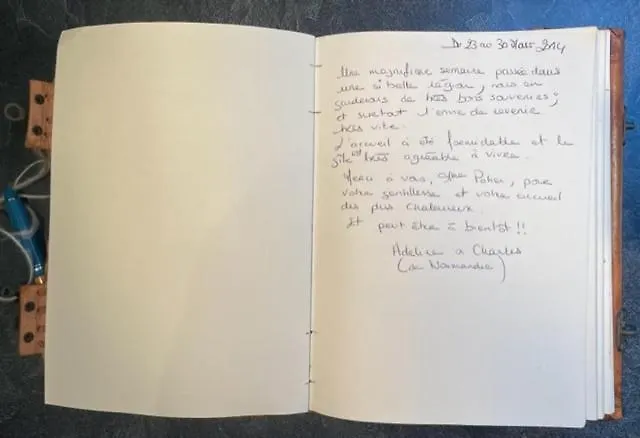 Du 23 au 30 Mars 2014
Une magnifique semaine passée dans
une si belle région, nous en
garderons de très bons souvenirs,
et surtout l'envie de revenir
très vite.
L'accueil a été formidable et le
gîte est très agréable à vivre.
Merci à vous, Mme Potier, pour
votre gentillesse et votre accueil
des plus chaleureux.
Et peut être à bientôt !!
Adeline & Charles
(de Normandie)